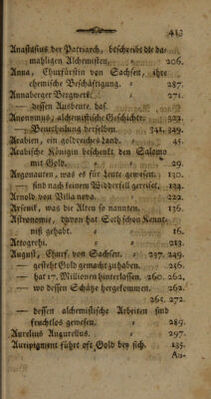 413
Anastasius der Patriarch, beschreibt die da-
mahligen Alchemisten. 206.
Anna, Churfürstin von Sachsen, ihre
chemische Beschäftigung. 287.
Annaberger Bergwerk. 271.
— dessen Ausbeute. das.
Anonymus, alchemistische Geschichte. 323.
— Beurtheilung derselben. 341. 349.
Arabien, ein goldreiches Land. 45.
Arabische Königin beschenkt den Salomo
mit Gold. 29.
Argonauten, was es für Leute gewesen. 130.
— sind nach keinem Widderfell gereiset. 133.
Arnold von Villa nova.
Arsenik, was die Alten so nannten. 136.
Astronomie, davon hat Seth schon Kennt-
niß gehabt. 16.
Attogrehi. 213.
August, Churf. von Sachsen. 237. 249.
— gesteht Gold gemacht zu haben. 256.
— hat 17. Millionen hinterlassen. 260. 262.
— wo dessen Schätze hergekommen. 262.
264. 272.
— dessen alchemistische Arbeiten sind
fruchtlos gewesen. 289.
Aurelius Augurellus. 297.
Auripigment führt oft Gold bey sich. 135.
Au-